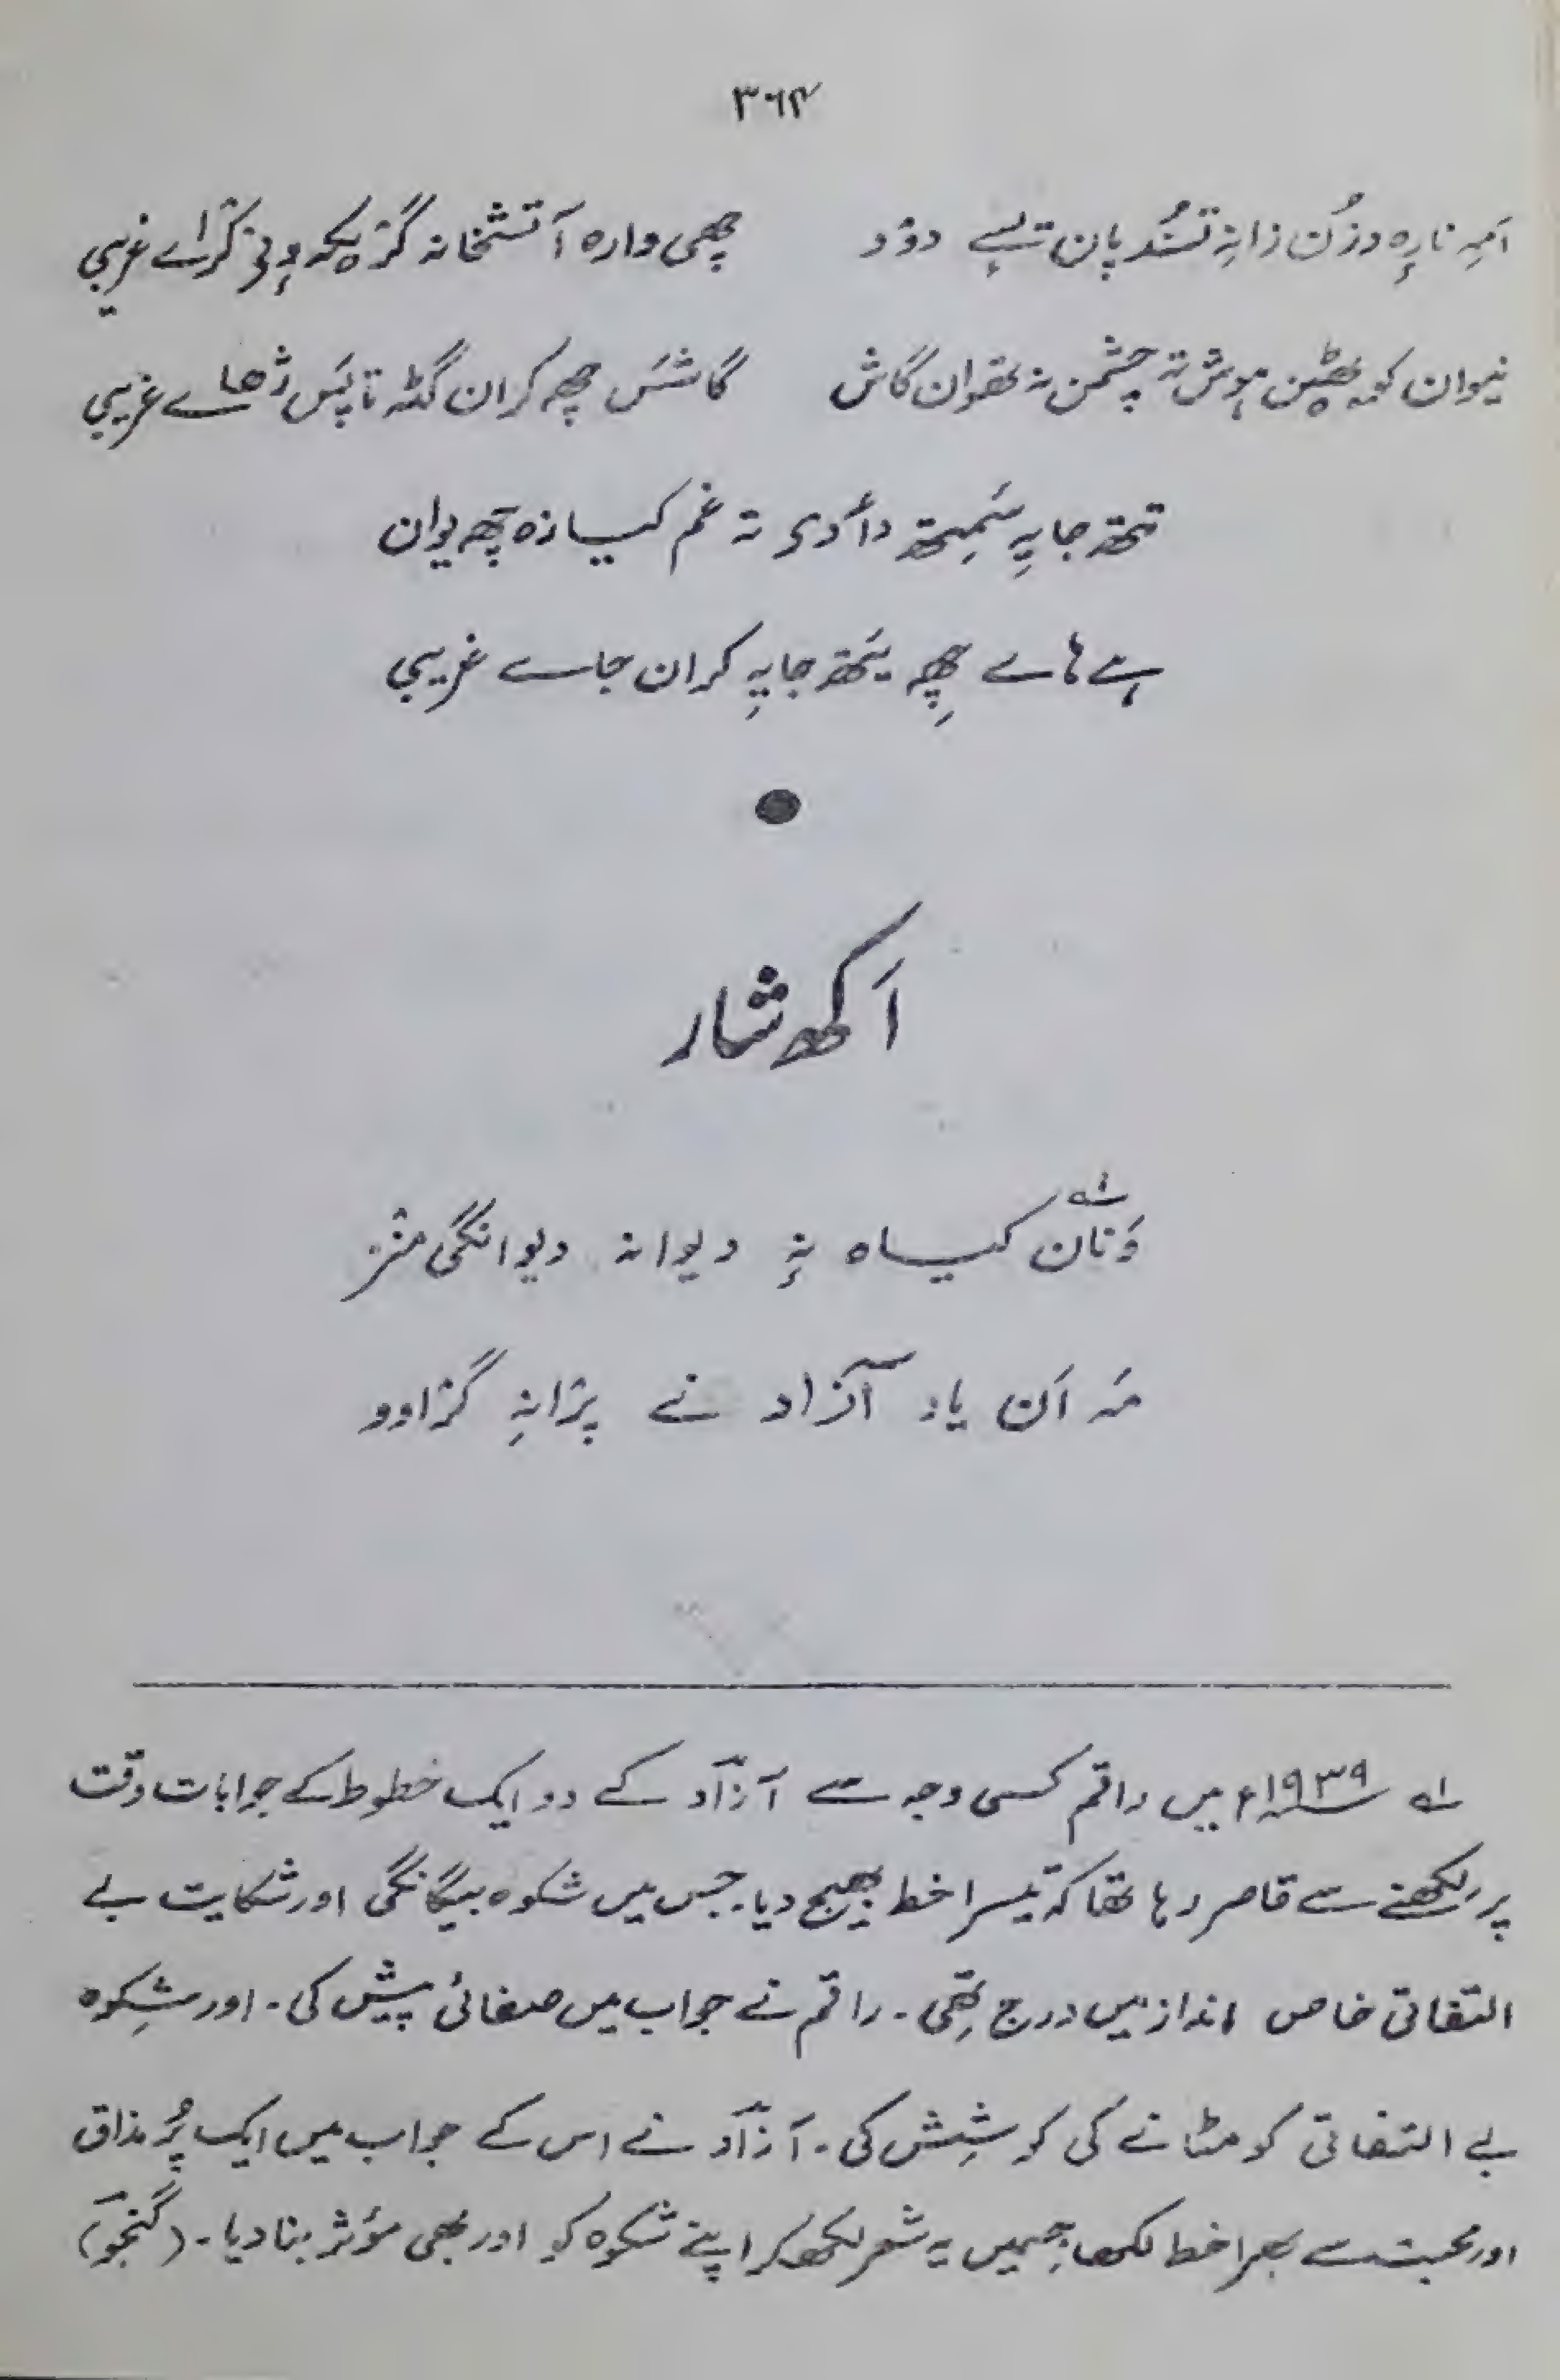 ۳۶۴
اَمہِ نارٕہ دزُن زانہِ تسُند پان تہٕ دوٗد چھی وارہ آتشخانہ گژ غریبی
نیوان ہوش تہ چشمن نہ تھوان گاش گاشسَ چھہ کران گٹہ تاپَس ژھاے غریبی
تتھ جایہِ سَمِتھ دأدی تہ غم کیازہ چھہ یوان
ہے ہاے چھِہ یَتھ جایہِ کران جاے غریبی
اَکھ شار
وَنان ؎۱ کیاہ بہٕ دیوانہ دیوانگی منز
مَہ اَن یاد آزاد نے پرٛانہِ گرٛاوو
؎۱ ۱۹۳۹ء میں راقم کسی وجہ سے آزاد کے دو ایک خطوط کے جوابات وقت
پر لکھنے سے قاصر رہا تھا کہ تیسرا خط بھیج دیا۔ جس میں شکوہ بیگانگی اور شکایت بے
التفاتی خاص انداز میں درج تھی۔ راقم نے جواب میں صفائی پیش کی۔ اور شِکوہ
بے التفاتی کو مٹانے کی کوشِش کی۔ آزاد نے اس کے جواب میں ایک پُر مذاق
اور محبت سے بھرا خط لکھا، جسمیں یہ شعر لکھ کر اپنے شکوہ کو اور بھی مؤثر بنا دیا۔ (گنجو)